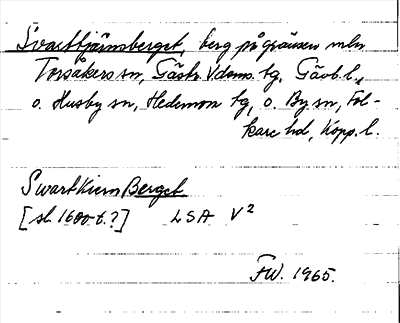 Svarttjärnsberget, berg på gränsen mln
Torsåkers sn, Gästr. V doms. tg, Gävb. l.,
o. Husby sn, Hedemora tg, o. By sn, Fol-
kare hd, Kopp. l.
Swart Kiern Berget
[sl. 1600-t.?] LSA V2
FW. 1965.